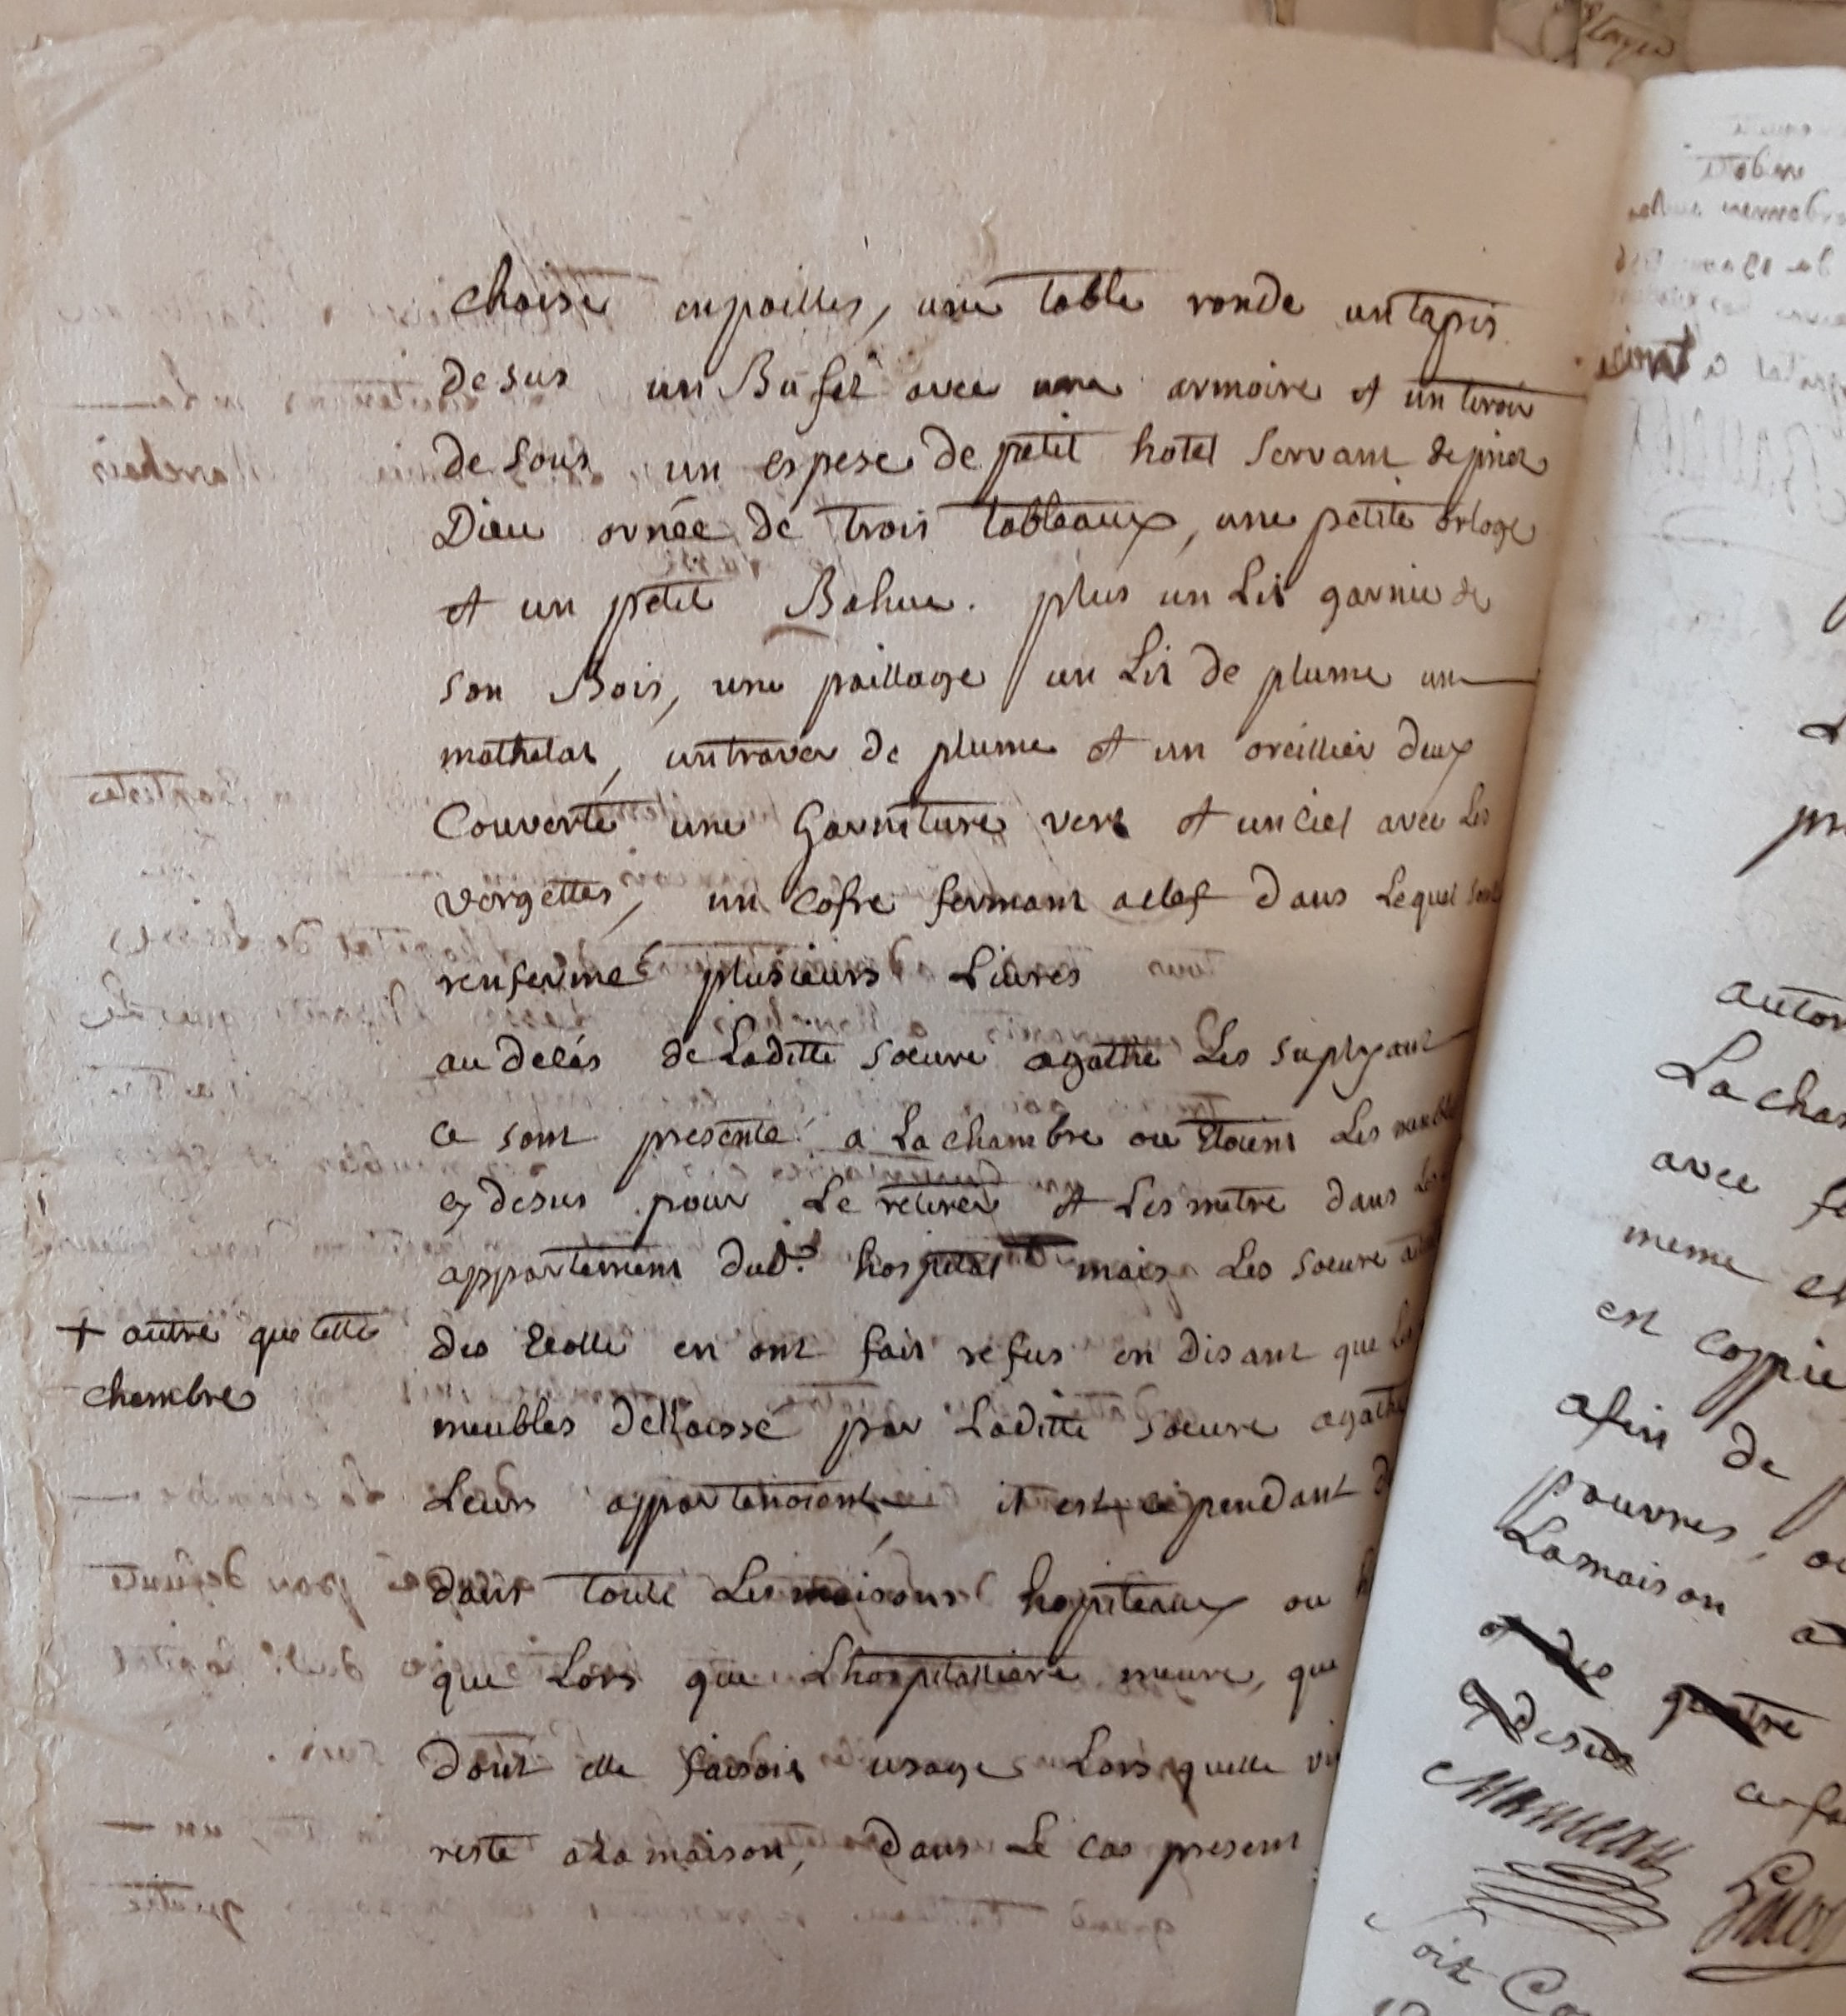 chaise enpailles, une table ronde un tapis
desus un Bufet avec une armoire et un tiroir
desous un espese de petit hotel servant de prier
Dieu ornée de trois tableaux, une petite orloge
et un petit Bahue. plus un Lit garnie de
son Bois, une paillage un Lit de plume un
mathelat, un traver de plume et un oreillier deux
Couverte une Garniture vert et un ciel avec Les
vergettes, un Cofre fermant aclef dans Lequel sont
renfermé plusieurs Livres
au delás de Laditte soeure agathe Les suplyant
ce sont presenté a La chambre ou Etoient Les meuble
cy desus pour Le retirer et Les metre dans
appartement dud. hospital mais Les soeure
+ autre que cette
chambre
des Ecolle en ont fait refus en disant que Les
meubles dellaissé par Laditte soeure agathe
Leurs appartenoient, it est cependant
dans toute Les maisons hopiteaux ou
que Lors que Lhospitalliere meure, que
dont elle faisoit usage Lors quelle
reste a La maison, dans Le cas present
auto
La cha
avec
meme
est coppie
afin de
pauvres,
La maison
quatre
cy desus